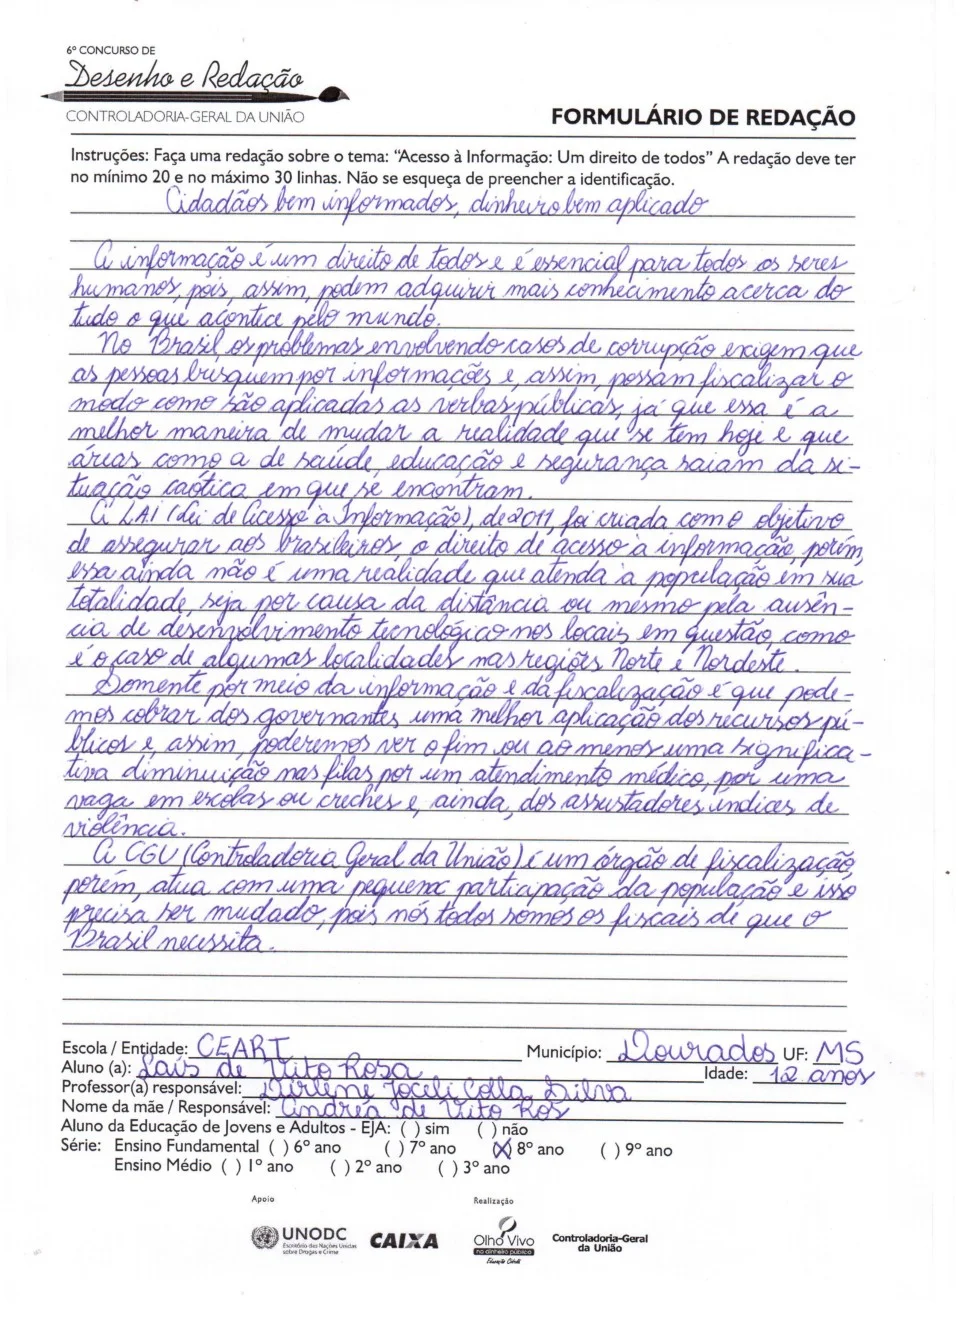 6º CONCURSO DE
Desenho e Redação
CONTROLADORIA-GERAL DA UNIÃO
FORMULÁRIO DE REDAÇÃO
Instruções: Faça uma redação sobre o tema: "Acesso à Informação: Um direito de todos" A redação deve ter
no mínimo 20 e no máximo 30 linhas. Não se esqueça de preencher a identificação.
Cidadãos bem informados, dinheiro bem aplicado
A informação é um direito de todos e é essencial para todos os seres
humanos, pois, assim, podem adquirir mais conhecimento acerca do
tudo o que acontece pelo mundo.
No Brasil, os problemas envolvendo casos de corrupção exigem que
as pessoas busquem por informações e, assim, possam fiscalizar o
modo como são aplicadas as verbas públicas, já que essa é a
melhor maneira de mudar a realidade que se tem hoje e que
áreas como a de saúde, educação e segurança saiam da si-
tuação caótica em que se encontram.
A LAI (Lei de Acesso à Informação), de 2011, foi criada com o objetivo
de assegurar aos brasileiros, o direito de acesso à informação, porém,
essa ainda não é uma realidade que atenda à população em sua
totalidade, seja por causa da distância ou mesmo pela ausên-
cia de desenvolvimento tecnológico nos locais em questão, como
é o caso de algumas localidades nas regiões Norte e Nordeste.
Somente por meio da informação e da fiscalização é que pode-
mos cobrar dos governantes uma melhor aplicação dos recursos pú-
blicos e, assim, poderemos ver o fim ou ao menos uma significa-
tiva diminuição nas filas por um atendimento médico, por uma
vaga em escolas ou creches e, ainda, dos assustadores índices de
violência.
A CGU (Controladoria Geral da União) é um órgão de fiscalização,
porém, atua com uma pequena participação da população e isso
precisa ser mudado, pois nós todos somos os fiscais de que o
Brasil necessita.
Escola / Entidade: CEART Município: Dourados UF: MS
Aluno (a): Laís de Vito Rosa Idade: 12 anos
Professor(a) responsável: Dirlene Joceli Colla Silva
Nome da mãe / Responsável: Andréa de Vito Ros
Aluno da Educação de Jovens e Adultos - EJA: ( ) sim ( ) não
Série: Ensino Fundamental ( ) 6º ano ( ) 7º ano (X) 8º ano ( ) 9º ano
Ensino Médio ( ) 1º ano ( ) 2º ano ( ) 3º ano
Apoio Realização
UNODC
Escritório das Nações Unidas
sobre Drogas e Crime
CAIXA
Olho Vivo
no dinheiro público
Educação Cidadã
Controladoria-Geral
da União